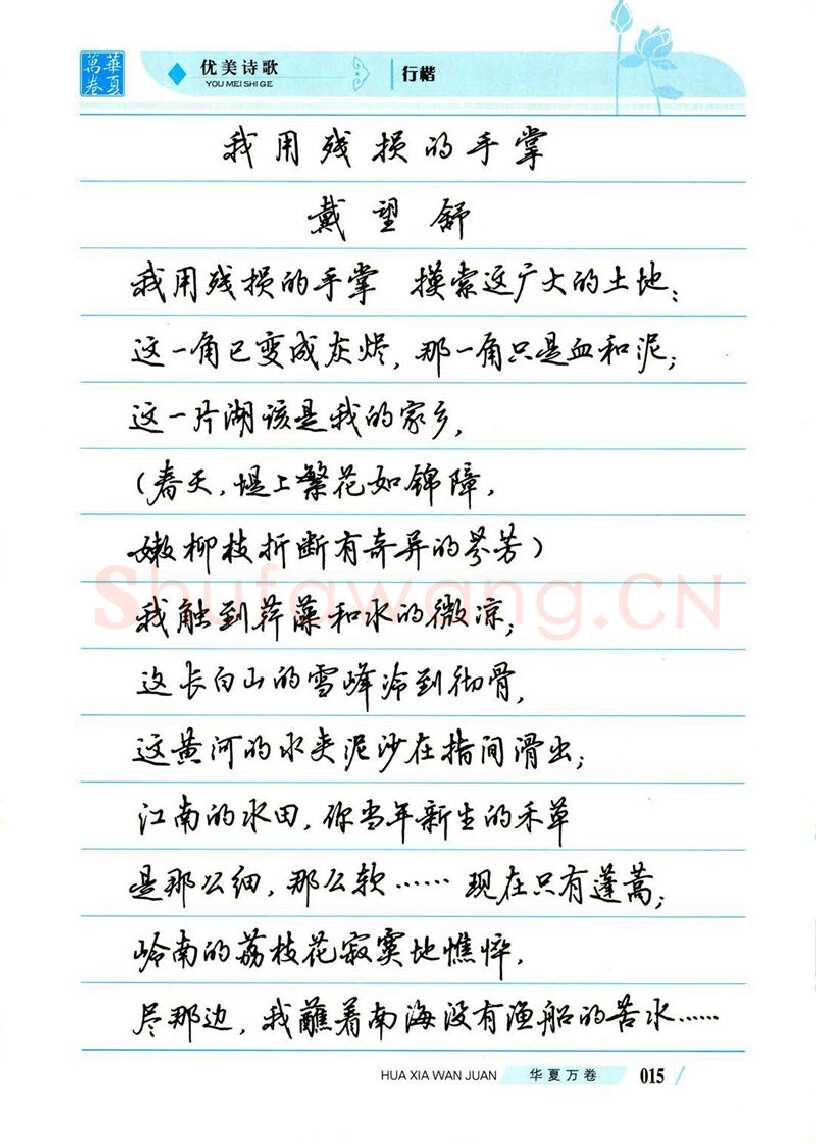 華夏
萬卷
优美诗歌
YOU MEI SHI GE
行楷
我用残损的手掌
戴望舒
我用残损的手掌 摸索这广大的土地；
这一角已变成灰烬，那一角只是血和泥；
这一片湖该是我的家乡，
（春天，堤上繁花如锦障，
嫩柳枝折断有奇异的芬芳）
我触到荇藻和水的微凉；
这长白山的雪峰冷到彻骨，
这黄河的水夹泥沙在指间滑出；
江南的水田，你当年新生的禾草
是那么细，那么软……现在只有蓬蒿；
岭南的荔枝花寂寞地憔悴，
尽那边，我蘸着南海没有渔船的苦水……
Shufawang.CN
HUA XIA WAN JUAN
华夏万卷
015